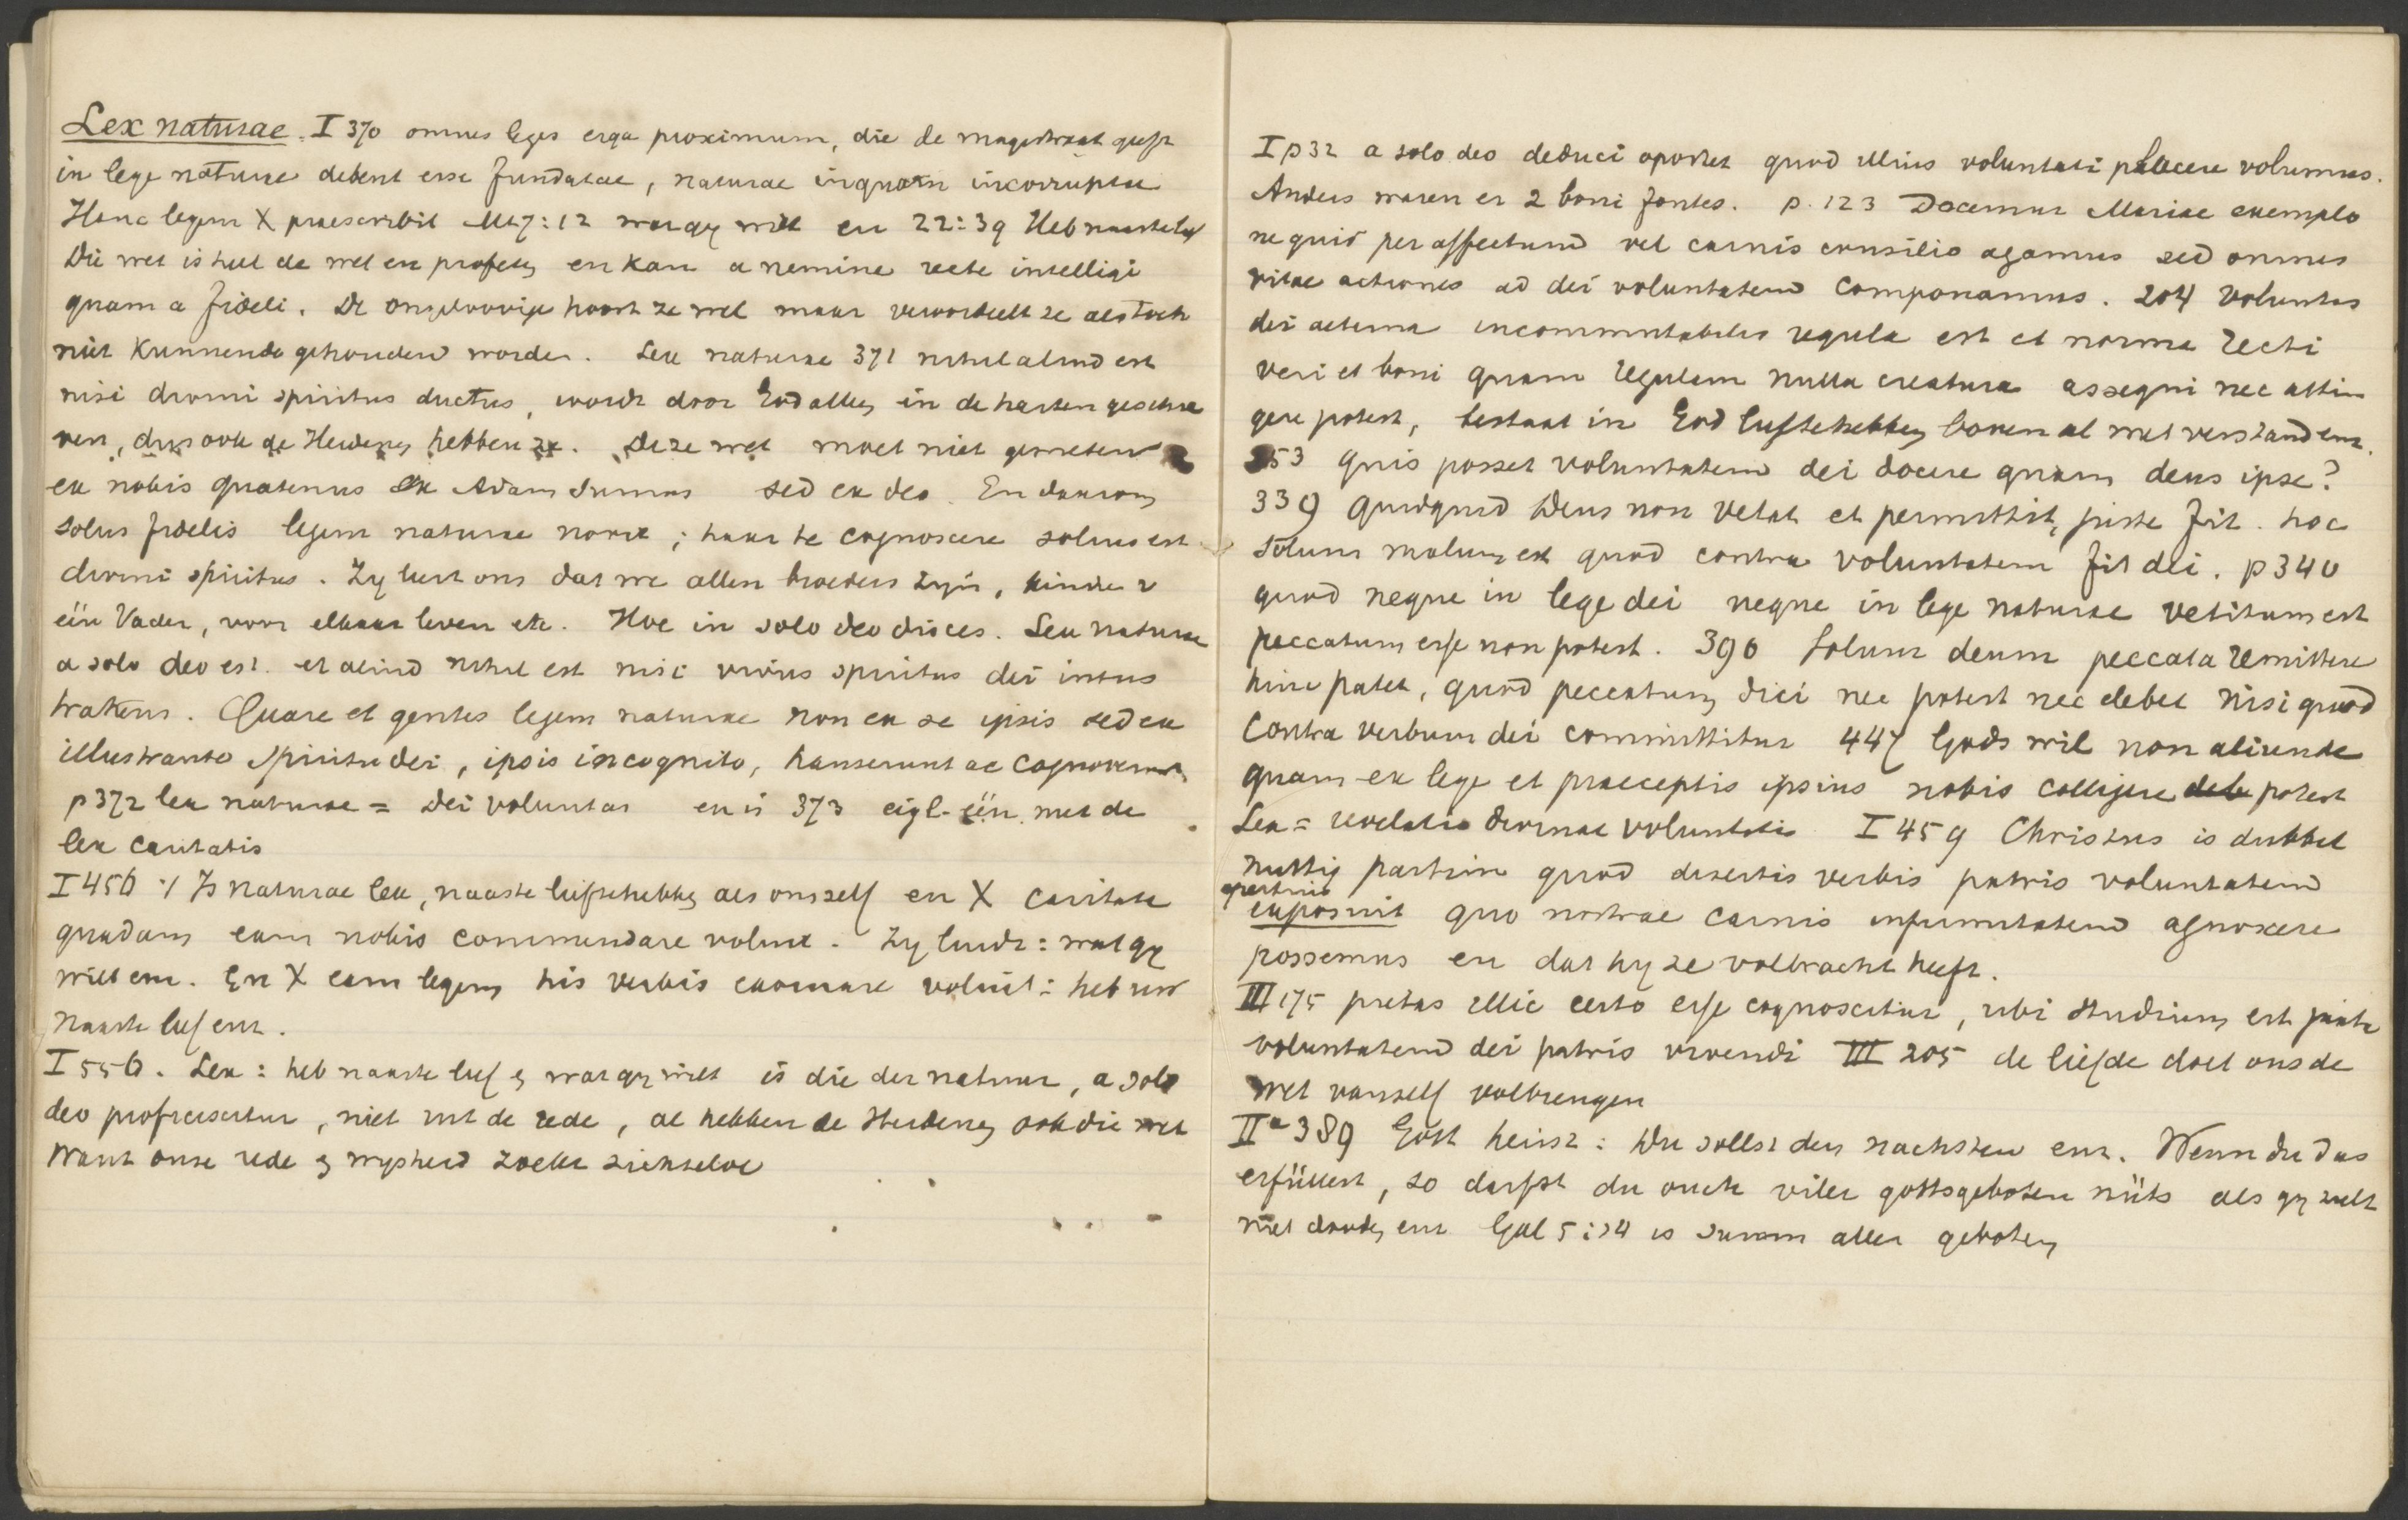 Lex naturae. I 370 omnes leges erga proximum, die de magistraat geeft
in lege naturae debent esse fundatae, naturae inquam incorruptae
Hanc legem X praescribit Mt 7:12 wat gy wilt en 22:39 Heb naaste lief
Die wet is heel de wet en profeten en kan a nemine recte intelligi
quam a fideli. De ongeloovige hoort ze wel maar veroordeelt ze als toch
niet kunnende gehouden worden. Lex naturae 371 nihil aliud est
nisi divini spiritus ductus, wordt door God alleen in de harten geschre
ven, dus ook de Heidenen hebben ze. Deze wet moet niet gemeten
ex nobis quatenus ex Adam sumus sed ex deo. En daarom
solus fidelis legem naturae novit; haar te cognoscere solius est
divini spiritus. Zy leert ons dat we allen broeders zyn, kinder v
één Vader, voor elkaar leven etc. Hoc in solo deo disces. Lex naturae
a solo deo est. et aliud nihil est nisi vivus spiritus dei intus
trahens. Quare et gentes legem naturae non ex se ipsis sed ex
illustrante spiritu dei, ipsis incognito, hauserunt ac cognoverunt,
p 372 lex naturae = Dei voluntas en is 373 eigl. één met de
lex caritatis
I 456 Is naturae lex, naaste liefhebben als onszelf en X caritate
quadam eam nobis commendare voluit. Zy luidt: wat gy
wilt enz. En X eam legem his verbis exornare voluit: heb uw
naaste lief enz.
I 556. Lex: heb naaste lief en wat gy wilt is die der natuur, a solo
deo proficiscitur, niet uit de rede, al hebben de Heidenen ook die wet
Want onze rede en wysheid zoekt zichzelve
I p 32 a solo deo deduci oportet quod illius voluntati placere volumus.
Anders waren er 2 boni fontes. p. 123 Docemur Mariae exemplo
ne quid per affectum vel carnis consilio agamus sed omnes
vitae actiones ad dei voluntatem componamus. 204 Voluntas
dei aeterna incommutabilis regula est et norma recti
veri et boni quam regulam nulla creatura assequi nec attin
gere potest, bestaat in God liefhebben boven al met verstand enz.
253 quis posset voluntatem dei docere quam deus ipse?
339 Quidquid Deus non vetat et permittit, juste fit. hoc
solum malum est quod contra voluntatem fit dei. p 340
quod neque in lege dei neque in lege naturae vetitum est
peccatum esse non potest. 390 Solum deum peccata remittere
hinc patet, quod peccatum dici nec potest nec debet nisi quod
contra verbum dei committitur 447 Gods wil non aliunde
quam ex lege et praeceptis ipsius nobis colligere potest
Lex = revelatio divinae voluntatis I 459 Christus is dubbel
nuttig partim quod disertis verbis patris voluntatem
apertius
exposuit quo nostrae carnis infirmitatem agnoscere
possemus en dat hy ze volbracht heeft.
III 175 pietas illic certo esse cognoscitur, ubi studium est juxta
voluntatem dei patris vivendi III 205 de liefde doet ons de
wet vanzelf volbrengen
IIa 389 Gott heisst: Du sollst den nachsten enz. Wenn du das
erfüllest, so darfst du ouch viler gottsgeboten nüts als gy zult
niet dooden enz Gal 5:14 is summ aller geboten